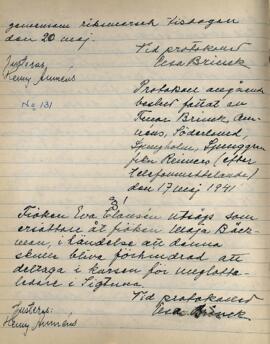 gemensam riksmarsch tisdagen
den 20 maj.
Vid protokollet
Esa Brinck
Justeras:
Henry Annéus
No 131
Protokoll angående
beslut fattat av
Brinck, An-
néus, Söderlund,
Ljungholm, Ljunggren,
fröken (efter
telefonmeddelande)
den 17 maj 1941
§1
Fröken Eva Clausén utsågs som
ersättare åt fröken Maja Bäck-
man, i händelse att denna
skulle bliva förhindrad att
deltaga i kursen för
ledare i Sigtuna.
Vid protokollet
Esa Brinck
Justeras:
Henry Annéus